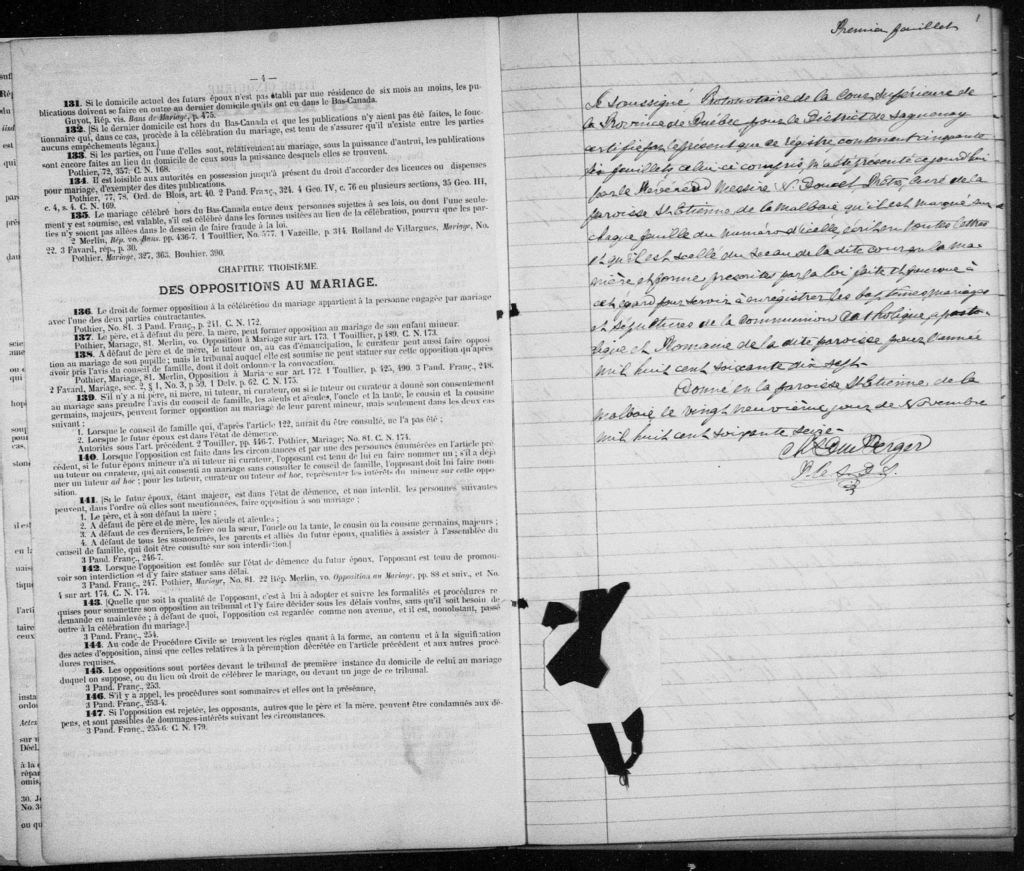 — 4 —
131. Si le domicile actuel des futurs époux n'est pas établi par une résidence de six mois au moins, les pu-
blications doivent se faire en outre au dernier domicile qu'ils ont eu dans le Bas-Canada.
Guyot, Rép. vis. Bans de Mariage, p. 475.
132. [Si le dernier domicile est hors du Bas-Canada et que les publications n'y aient pas été faites, le fonc-
tionnaire qui, dans ce cas, procède à la célébration du mariage, est tenu de s'assurer qu'il n'existe entre les parties
aucuns empêchements légaux.]
133. Si les parties, ou l'une d'elles sont, relativement au mariage, sous la puissance d'autrui, les publications
sont encore faites au lieu du domicile de ceux sous la puissance desquels elles se trouvent.
Pothier, 72, 357. C. N. 168.
134. Il est loisible aux autorités en possession jusqu'à présent du droit d'accorder des licences ou dispenses
pour mariage, d'exempter des dites publications.
Pothier, 77, 78. Ord. de Blois, art. 40. 2 Pand. Franç., 324. 4 Geo. IV, c. 76 en plusieurs sections, 35 Geo. III,
c. 4, s. 4. C. N. 169.
135. Le mariage célébré hors du Bas-Canada entre deux personnes sujettes à ses lois, ou dont l'une seule-
ment y est soumise, est valable, s'il est célébré dans les formes usitées au lieu de la célébration, pourvu que les par-
ties n'y soient pas allées dans le dessein de faire fraude à la loi.
2 Merlin, Rép. vo. Bans. pp. 436-7. 1 Touillier, No. 577. 1 Vazeille. p. 314. Rolland de Villargues, Mariage, No.
22. 3 Favard, rép., p. 30.
Pothier, Mariage, 327, 363. Bouhier. 390.
CHAPITRE TROISIÈME.
DES OPPOSITIONS AU MARIAGE.
136. Le droit de former opposition à la célébration du mariage appartient à la personne engagée par mariage
avec l'une des deux parties contractantes.
Pothier, No. 81. 3 Pand. Franç., p. 241. C. N. 172.
137. Le père, et à défaut du père, la mère, peut former opposition au mariage de son enfant mineur.
Pothier, Mariage, 81. Merlin, vo. Opposition à Mariage sur art. 173. 1 Touillier, p 489. C. N. 173.
138. A défaut de père et de mère, le tuteur ou, au cas d'émancipation, le curateur peut aussi faire opposi-
tion au mariage de son pupille; mais le tribunal auquel elle est soumise ne peut statuer sur cette opposition qu'après
avoir pris l'avis du conseil de famille, dont il doit ordonner la convocation.
Pothier, Mariage, 81. Merlin, Opposition à Mariage sur art. 172. 1 Touillier, p. 425, 490. 3 Pand. Franç., 248.
2 Favard, Mariage, sec. 2, § 1, No. 3, p 59. 1 Delv. p. 62. C. N. 175.
139. S'il n'y a ni père, ni mère, ni tuteur, ni curateur, ou si le tuteur ou curateur a donné son consentement
au mariage sans prendre l'avis du conseil de famille, les aïeuls et aïeules, l'oncle et la tante, le cousin et la cousine
germains, majeurs, peuvent former opposition au mariage de leur parent mineur, mais seulement dans les deux cas
suivant :
1. Lorsque le conseil de famille qui, d'après l'article 122, aurait du être consulté, ne l'a pas été ;
2. Lorsque le futur époux est dans l'état de démence.
Autorités sous l'art. précédent. 2 Touiller, pp. 446-7. Pothier, Mariage; No. 81. C. N. 174.
140. Lorsque l'opposition est faite dans les circonstances et par une des personnes énumérées en l'article pré-
cédent, si le futur époux mineur n'a ni tuteur ni curateur, l'opposant est tenu de lui en faire nommer un ; s'il a déjà
un tuteur ou curateur, qui ait consenti au mariage sans consulter le conseil de famille, l'opposant doit lui faire nom-
mer un tuteur ad hoc ; pour les tuteur, curateur ou tuteur ad hoc, représenter les intérêts du mineur sur cette oppo-
sition.
141. [Si le futur époux, étant majeur, est dans l'état de démence, et non interdit. les personnes suivantes
peuvent, dans l'ordre où elles sont mentionnées, faire opposition à son mariage ;
1. Le père, et à son défaut la mère ;
2. A défaut de père et de mère, les aïeuls et aïeules ;
3. A défaut de ces derniers, le frère ou la sœur, l'oncle ou la tante, le cousin ou la cousine germains, majeurs ;
4. A défaut de tous les susnommés, les parents et alliés du futur époux, qualifiés à assister à l'assemblée du
conseil de famille, qui doit être consulté sur son interdiction.]
3 Pand. Franç., 246-7.
142. Lorsque l'opposition est fondée sur l'état de démence du futur époux, l'opposant est tenu de promou-
voir son interdiction et d'y faire statuer sans délai.
3 Pand. Franç., 247. Pothier, Mariage, No. 81. 22 Rép. Merlin, vo. Opposition au Mariage, pp. 88 et suiv., et No.
4 sur art. 174. C. N. 174.
143. [Quelle que soit la qualité de l'opposant, c'est à lui à adopter et suivre les formalités et procédures re-
quises pour soumettre son opposition au tribunal et l'y faire décider sous les délais voulus, sans qu'il soit besoin de
demande en mainlevée ; à défaut de quoi, l'opposition est regardée comme non avenue, et il est, nonobstant, passé
outre à la célébration du mariage.]
3 Pand. Franç., 254.
144. Au code de Procédure Civile se trouvent les règles quant à la forme, au contenu et à la signification
des actes d'opposition, ainsi que celles relatives à la péremption décrétée en l'article précédent et aux autres procé-
dures requises.
145. Les oppositions sont portées devant le tribunal de première instance du domicile de celui au mariage
duquel on suppose, ou du lieu où droit de célébrer le mariage, ou devant un juge de ce tribunal.
3 Pand. Franç., 253.
146. S'il y a appel, les procédures sont sommaires et elles ont la préséance,
3 Pand. Franç., 253-4.
147. Si l'opposition est rejetée, les opposants, autres que le père et la mère, peuvent être condamnés aux dé-
pens, et sont passibles de dommages-intérêts suivant les circonstances.
3 Pand. Franç., 255-6. C. N. 179.
Premier feuillet
1
Le soussigné Protonotaire de la Cour Supérieure de
la Province de Québec pour le District de Saguenay
certifie par le présent que ce régistre contenant cinquante
six feuillets celui-ci compris m'a été présenté ce jourd'hui
par le Révérend Messire N. Doucet Prêtre, Curé de la
paroisse St Etienne de la Malbaie qu'il est marqué sur
chaque feuille du numéro d'icelle écrit en toutes lettres
et qu'il est scellé du sceau de la dite cour en la ma-
nière et forme prescrites par la loi faite et pourvue à
cet égard pour servir à enregistrer les baptêmes mariages
et sépultures de la communion Catholique aposto-
lique et Romaine de la dite paroisse pour l'année
mil huit cent soixante dix sept.
Donné en la paroisse St Etienne de la
Malbaie le vingt neuvième jour de Novembre
mil huit cent soixante seize.
Chs Du Berger
P. C. S. D. S.